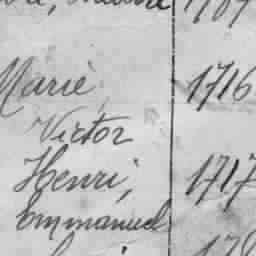 Marie, 1716
Victor
Henri, 1717
Emmanuel